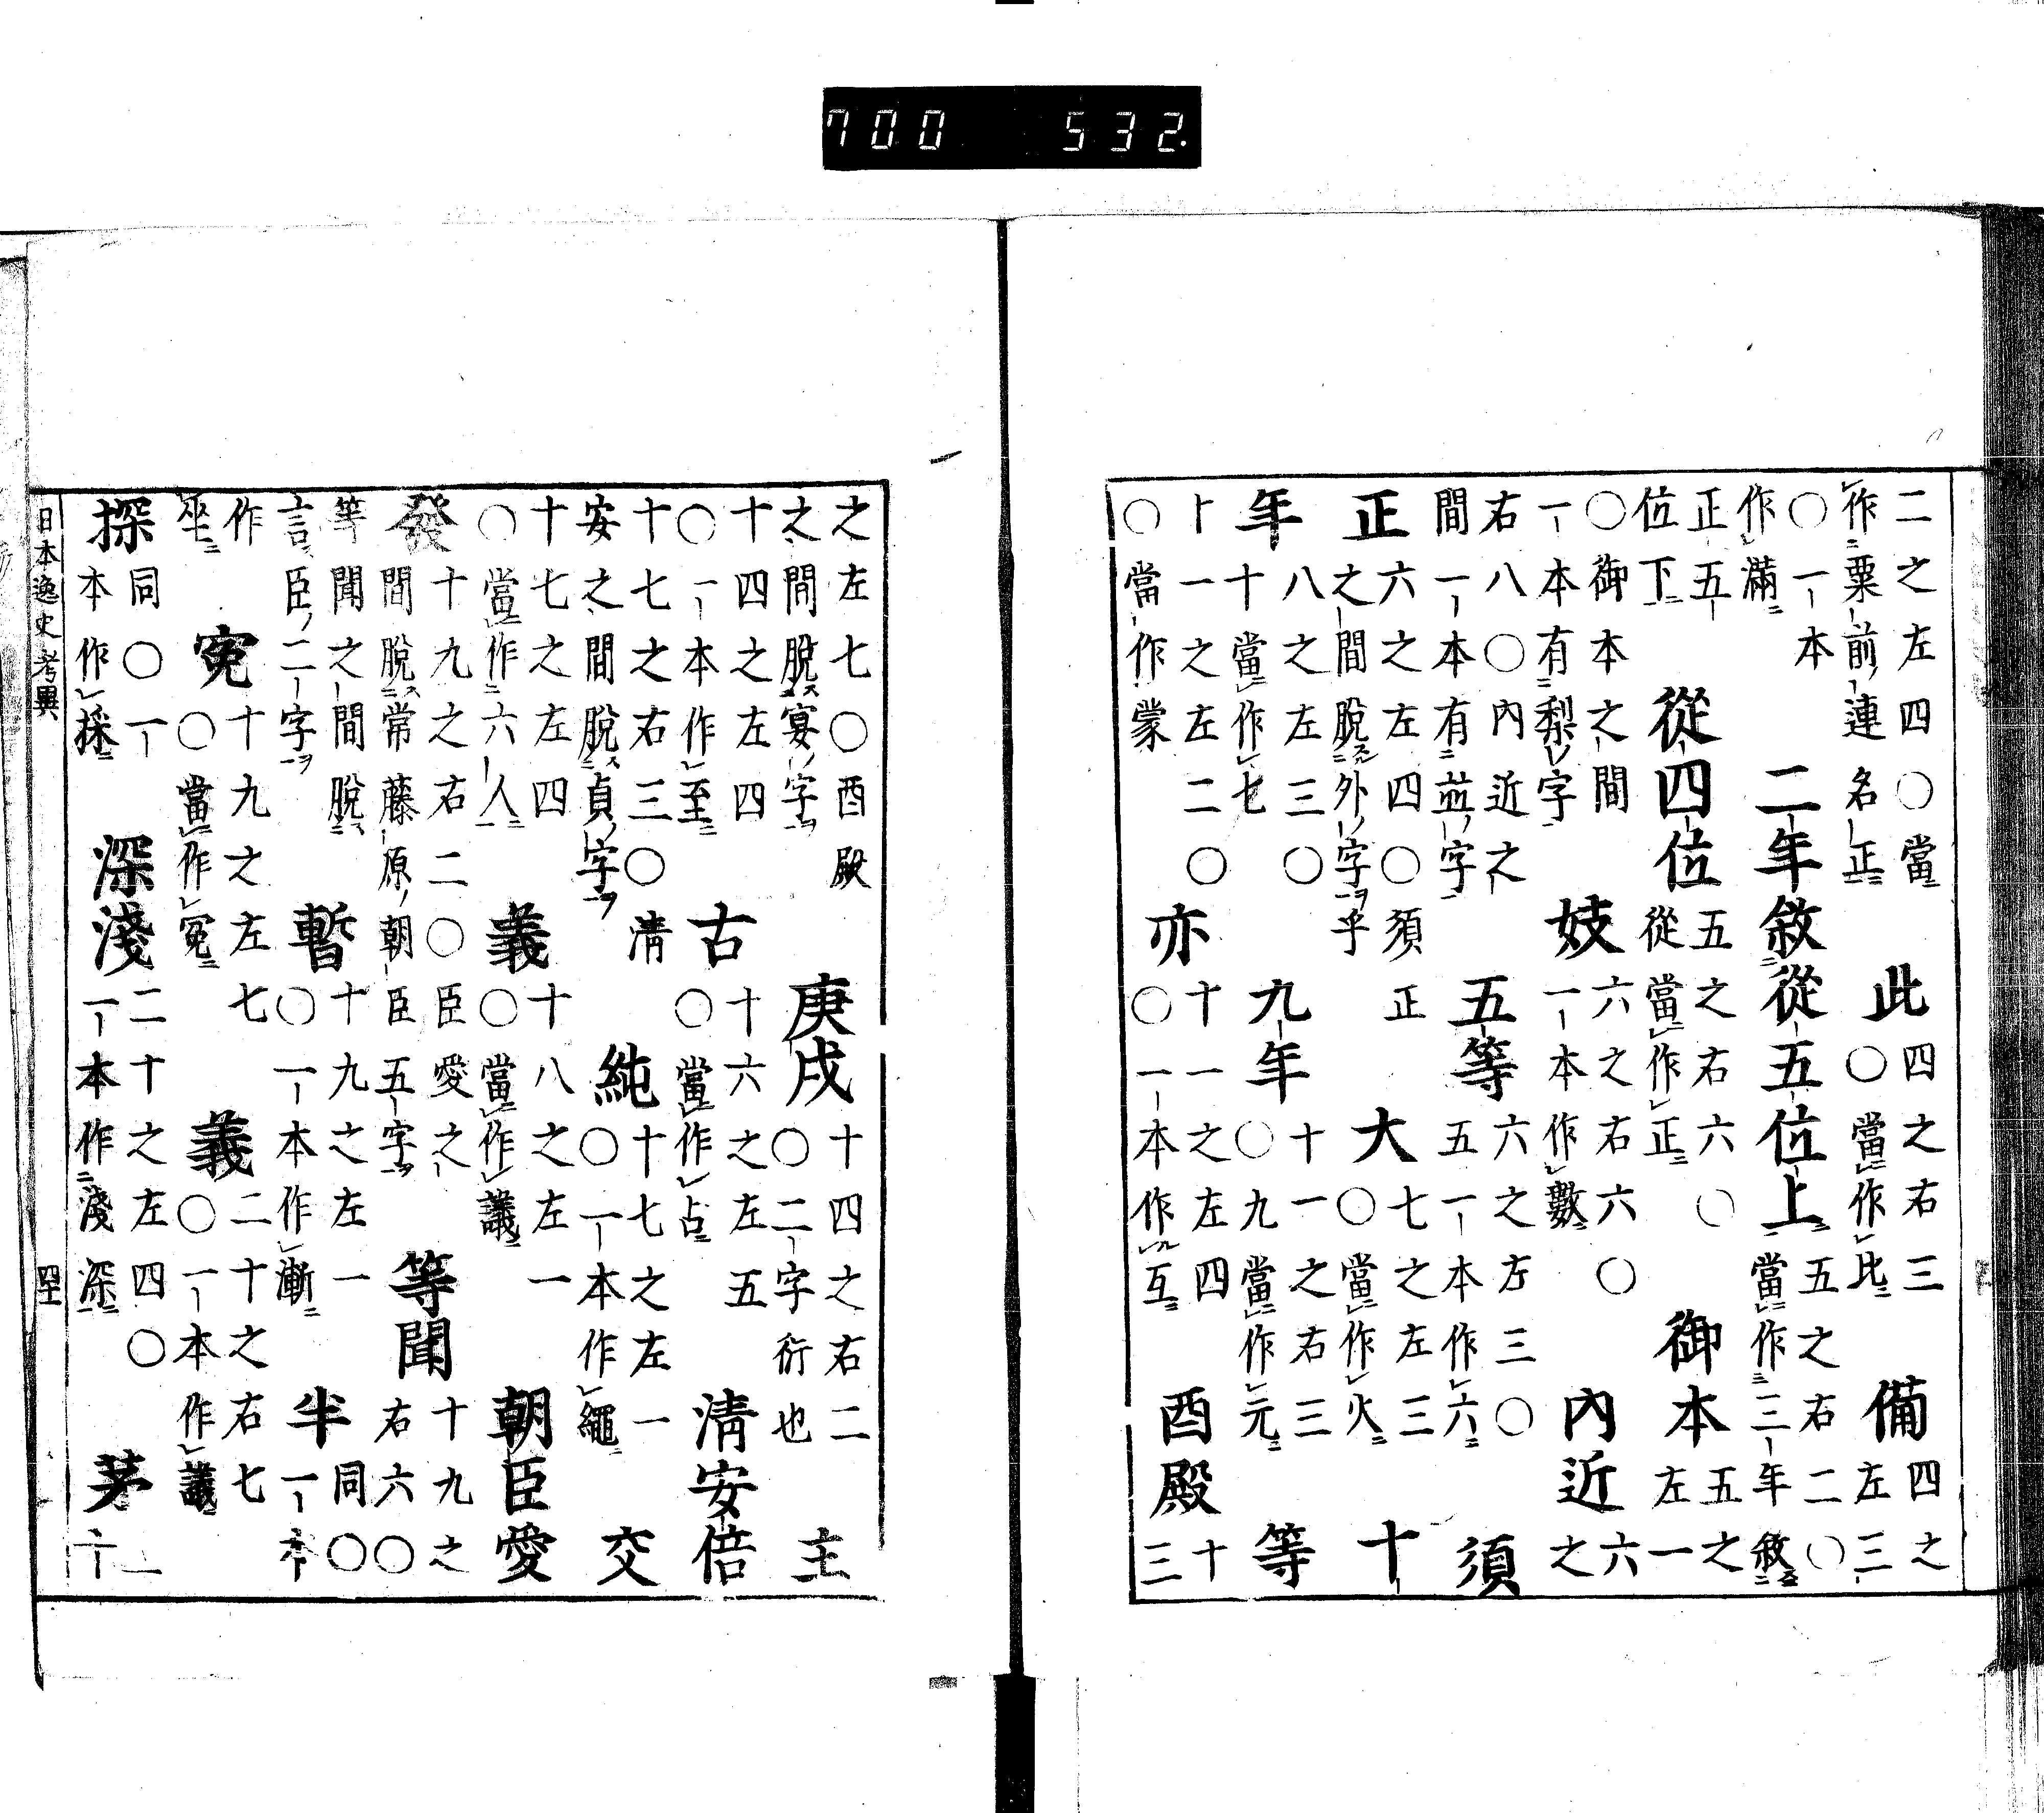 700 532
二之左四〇當作粟前連名正此四之右三〇當作比備四之左三
〇一本作滿二年敘從五位上五之右二〇當作三年敘
正五位下從四位五之右六〇從當作正御本五之左一
〇御本之間一本有梨字妓六之右六〇一本作數內近六之
右八〇內近之間一本有並字五等六之左三〇五一本作六須
正六之左四〇須正之間脫外字乎大七之左三〇當作火十
年八之左三〇十當作七九年十一之右三〇九當作元等
十一之左二〇〇當作蒙亦十一之左四〇一本作互酉殿十三
之左七〇酉殿之間脫宴字庚戌十四之右二〇二字衍也主
十四之左四〇一本作至古十六之左五〇當作占清安倍
十七之右三〇清安之間脫貞字純十七之左一〇一本作繩交
十七之左四〇當作六人義十八之左一〇當作議朝臣愛
發十九之右二〇臣愛之間脫常藤原朝臣五字等聞十九之右六〇
等聞之間脫言臣二字暫十九之左一〇一本作漸半同〇一本
作坐寃十九之左七〇當作冤義二十之右七〇一本作議
探同〇一本作採深淺二十之左四〇一本作淺深茅二十
日本逸史考異